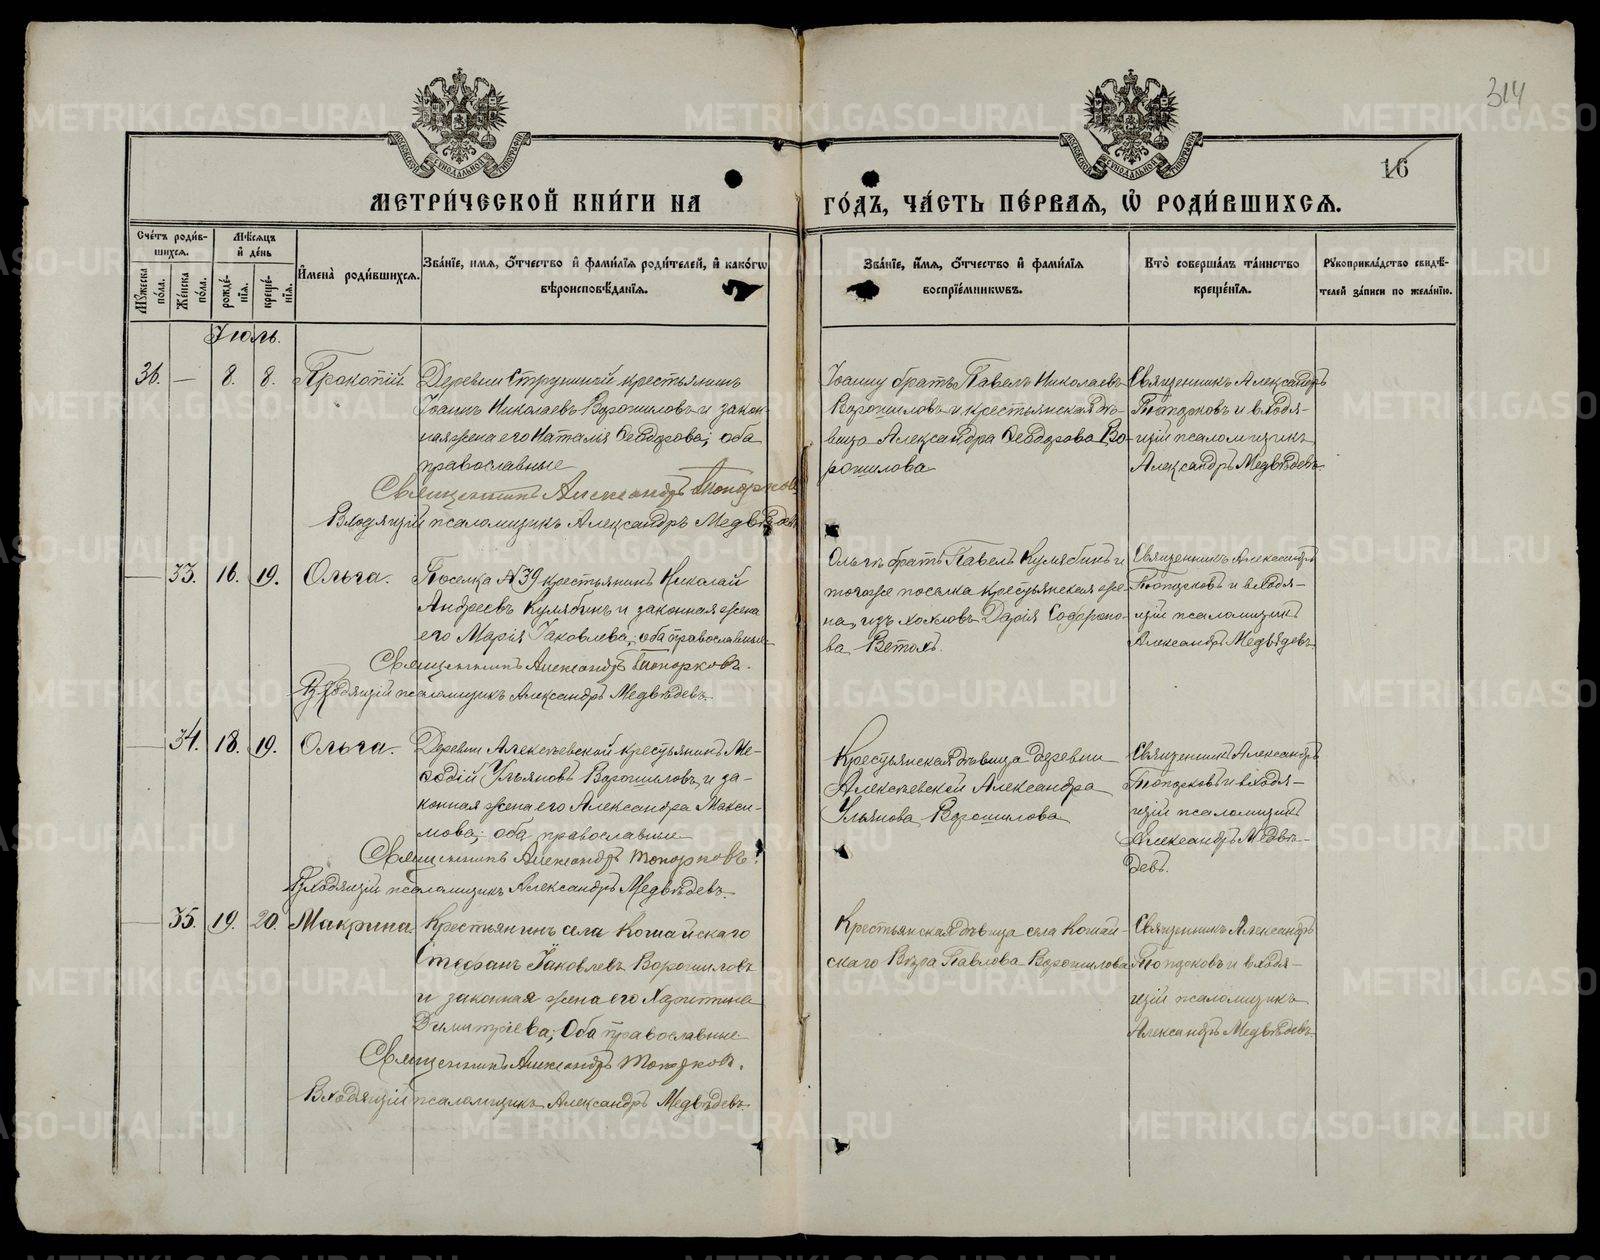 314
16
МЕТРИ́ЧЕСКОЙ КНИ́ГИ НА ГО́ДЪ, ЧА́СТЬ ПЕ́РВАѦ, Ѽ РОДИ́ВШИХСѦ.
Сче́тъ роди́вшихсѧ.
Мꙋ́жеска по́ла.
Же́нска по́ла.
Мѣ́сѧцъ и҆ де́нь
рожде́нїѧ.
креще́нїѧ.
И҆мена̀ роди́вшихсѧ.
Зва́нїе, и҆мѧ, ѻ҆́тчество и҆ фами́лїѧ роди́телей, и҆ како́гѡ
вѣроисповѣ́данїѧ.
Зва́нїе, и҆́мѧ, ѻ҆́тчество и҆ фами́лїѧ
воспрїе́мникѡвъ.
Кто̀ соверша́лъ та́инство
креще́нїѧ.
Рꙋкоприкла́дство свидѣ́-
телей за́писи по жела́нїю.
Іюль.
36. — 8. 8. Прокопій.
Деревни Струниной крестьянинъ
Іоаннъ Николаевъ Ворошиловъ и закон-
ная жена его Наталія Ѳеодорова; оба
православные
Священникъ Александръ Топорковъ
Входящій псаломщикъ Александръ Медвѣдевъ
Іоанну братъ Павелъ Николаевъ
Ворошиловъ и крестьянская дѣ-
вица Александра Ѳеодорова Во-
рошилова
Священникъ Александръ
Топорковъ и входя-
щій псаломщикъ
Александръ Медвѣдевъ.
— 33. 16. 19. Ольга.
Поселка №39 крестьянинъ Николай
Андреевъ Кулябинъ и законная жена
его Марія Іаковлева; оба православные
Священникъ Александръ Топорковъ.
Входящій псаломщикъ Александръ Медвѣдевъ.
Ольги братъ Павелъ Кулябинъ и
тогоже поселка крестьянская же-
на, изъ хохловъ Дарія Софроно-
ва Ветохъ.
Священникъ Александръ
Топорковъ и входя-
щій псаломщикъ
Александръ Медвѣдевъ
— 34. 18. 19. Ольга.
Деревни Алексѣевской крестьянинъ Ме-
ѳодій Ульяновъ Ворошиловъ, и за-
конная жена его Александра Макси-
мова; оба православные
Священникъ Александръ Топорковъ.
Входящій псаломщикъ Александръ Медвѣдевъ.
Крестьянская дѣвица деревни
Алексѣевской Александра
Ульянова Ворошилова
Священникъ Александръ
Топорковъ и входя-
щій псаломщикъ
Александръ Медвѣ-
девъ.
— 35. 19. 20. Макрина.
Крестьянинъ села Кошайскаго
Стефанъ Іаковлевъ Ворошиловъ
и законная жена его Харитина
Димитріева; Оба православные
Священникъ Александръ Топорковъ.
Входящій псаломщикъ Александръ Медвѣдевъ
Крестьянская дѣвица села Кошай-
скаго Вѣра Павлова Ворошилова
Священникъ Александръ
Топорковъ и входя-
щій псаломщикъ
Александръ Медвѣдевъ
METRIKI.GASO-URAL.RU